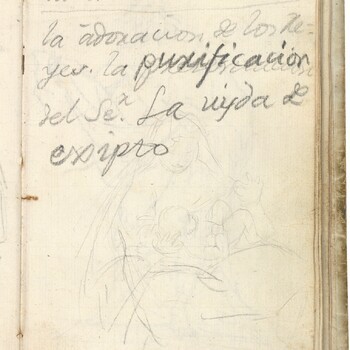 la adoracion de los Re-
yes. la purificacion
del Se.r La uyda de
exipto